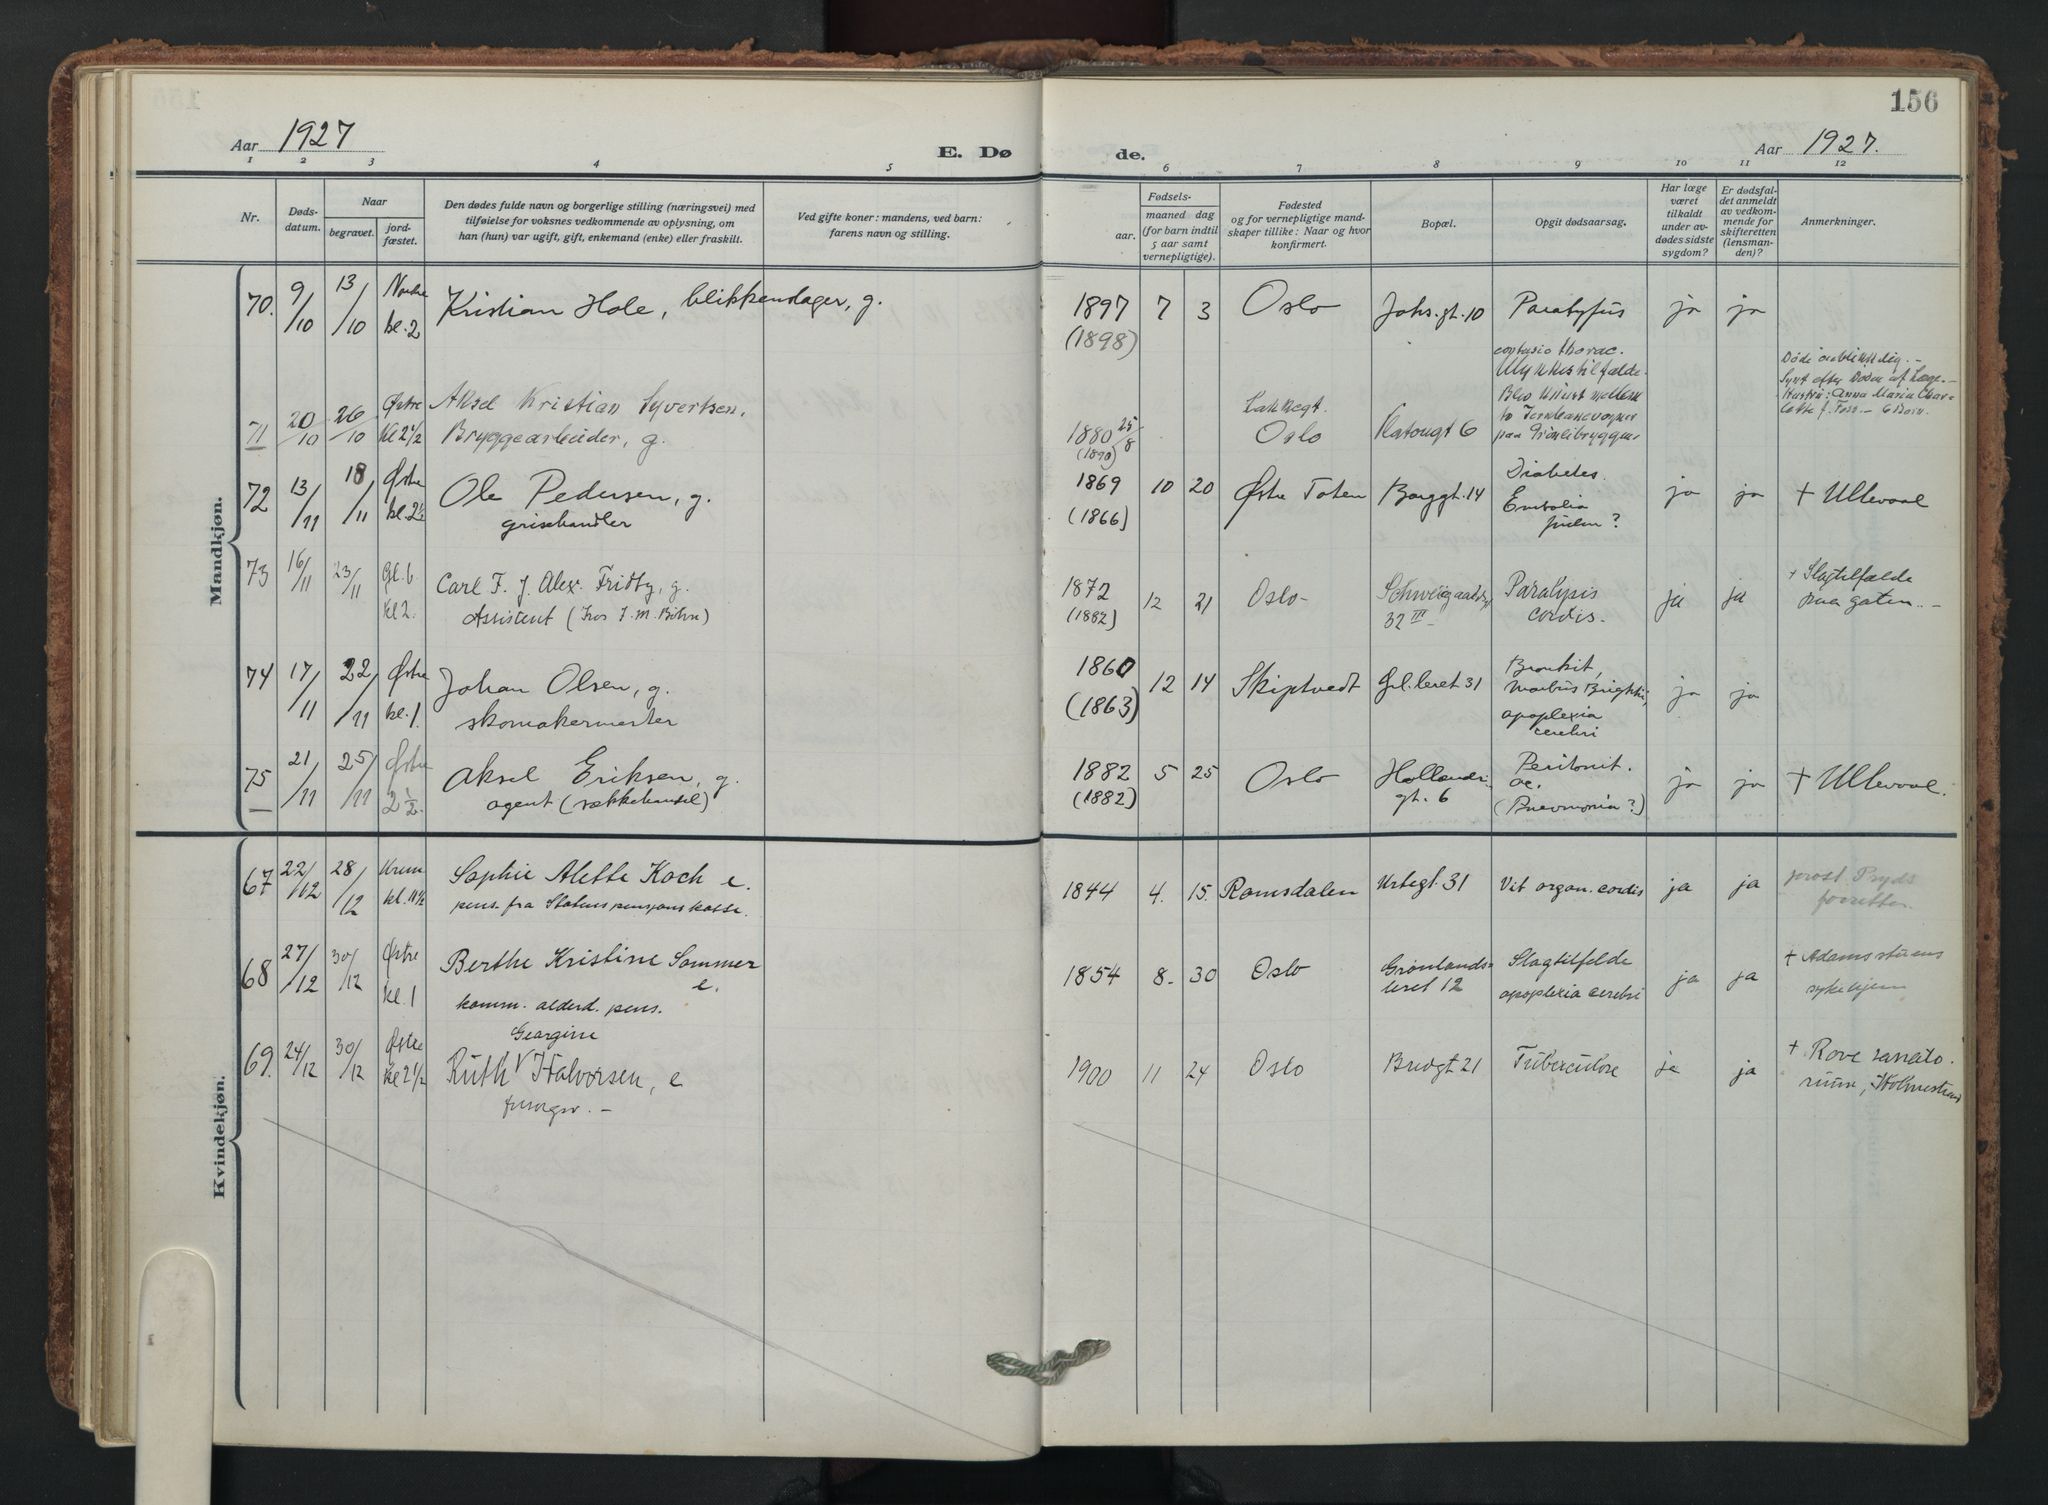 156
Aar 1927
E. Dø
de.
Aar 1927.
1 2 3 4 5 6 7 8 9 10 11 12
Nr.
Døds-
datum.
Naar
begravet.
jord-
fæstet.
Den dødes fulde navn og borgerlige stilling (næringsvei) med
tilføielse for voksnes vedkommende av oplysning, om
han (hun) var ugift, gift, enkemand (enke) eller fraskilt.
Ved gifte koner: mandens, ved barn:
farens navn og stilling.
Fødsels-
aar.
maaned dag
(for barn indtil
5 aar samt
vernepligtige).
Fødested
og for vernepligtige mand-
skaper tillike: Naar og hvor
konfirmert.
Bopæl.
Opgit dødsaarsag.
Har læge
været
tilkaldt
under av-
dødes sidste
sygdom?
Er dødsfal-
det anmeldt
av vedkom-
mende for
skifteretten
(lensman-
den)?
Anmerkninger.
Mandkjøn.
70. 9/10 13/10 Nordre kl. 2 Kristian Hole, blikkenslager, g.
1897 7 3 Oslo Johs. gt. 10 Paratyfus ja ja
(1898)
71 20/10 26/10 Østre Kl 2 1/2 Aksel Kristian Syvertsen,
Bryggearbeider, g.
1880 25/8 Oslo Platougt 6
contusio thorac.
Ulykkestilfælde.
Blev klemt mellem
to Jernbanevogner
paa Grønlibryggen
Døde øieblikkelig. -
Synt efter Døden af Læge. -
Hustru: Anna Maria Char-
lotte f. Foss. - 6 Børn.
72 13/11 18/11 Østre kl. 2 1/2 Ole Pedersen, g.
grisehandler
1869 10 20 Østre Toten Borggt. 14 Diabetes. ja ja + Ullevaal
(1866) Embolia
pulm?
73 16/11 23/11 Gl. b. kl 2. Carl F. J. Alex. Fridby, g.
Assistent (hos J. M. Bøhn)
1872 12 21 Oslo- Schweigaardsgt Paralysis ja ja + Slagtilfælde
(1882) 32 III - cordis. paa gaten. -
74 17/11 22/11 Østre kl. 1. Johan Olsen, g.
skomakermester
1860 12 14 Skiptvedt Grl. leret 31 Bronkit, ja ja
(1863) Morbus Brightii,
apoplexia
cerebri
75 21/11 25/11 Østre 2 1/2. Aksel Eriksen, g.
agent (sækkehandel)
1882 5 25 Oslo Hollendergt. 6 Peritonit. ja ja + Ullevaal.
(1882) ac.
(Pneumonia?)
Kvindekjøn.
67 22/12 28/12 Krem kl. 11 1/2 Sophie Alette Koch e.
pens. fra Statens pensjonskasse.
1844 4. 15. Romsdalen Urtegt. 31 Vit. organ. cordis ja ja prost Pryds
forretter.
68 27/12 30/12 Østre kl. 1 Berthe Kristine Sommer
e.
komm. alderd. pens.
1854 8. 30 Oslo Grønlands- Slagtilfelde ja ja + Adamstuens
leret 12 apoplexia cerebri sykehjem
Georgine
69. 24/12 30/12 Østre Kl 2 1/2 Ruth V Halvorsen, e
forsorgsv. -
1900 11 24 Oslo Bredgt 21 Tuberculose ja ja + Rove sanato-
rium, Holmestrand